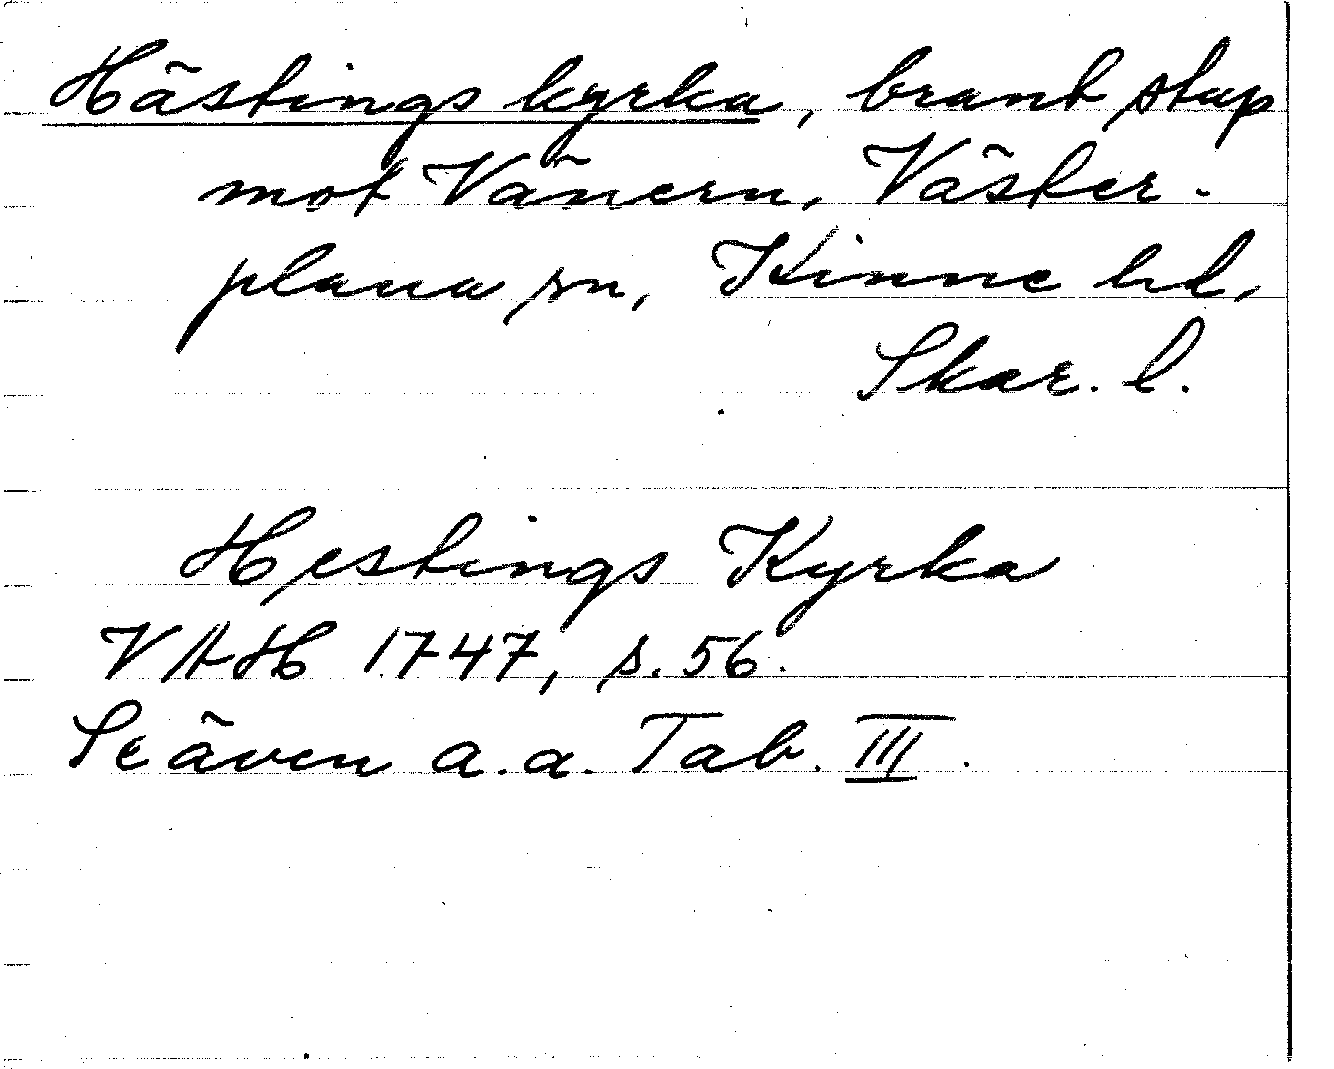 Hästings kyrka, brant stup
mot Vänern, Väster-
plana sn, Kinne hd,
Skar. l.
Hęstings Kyrka
VAH 1747, s. 56.
Se även a.a. Tab. III.